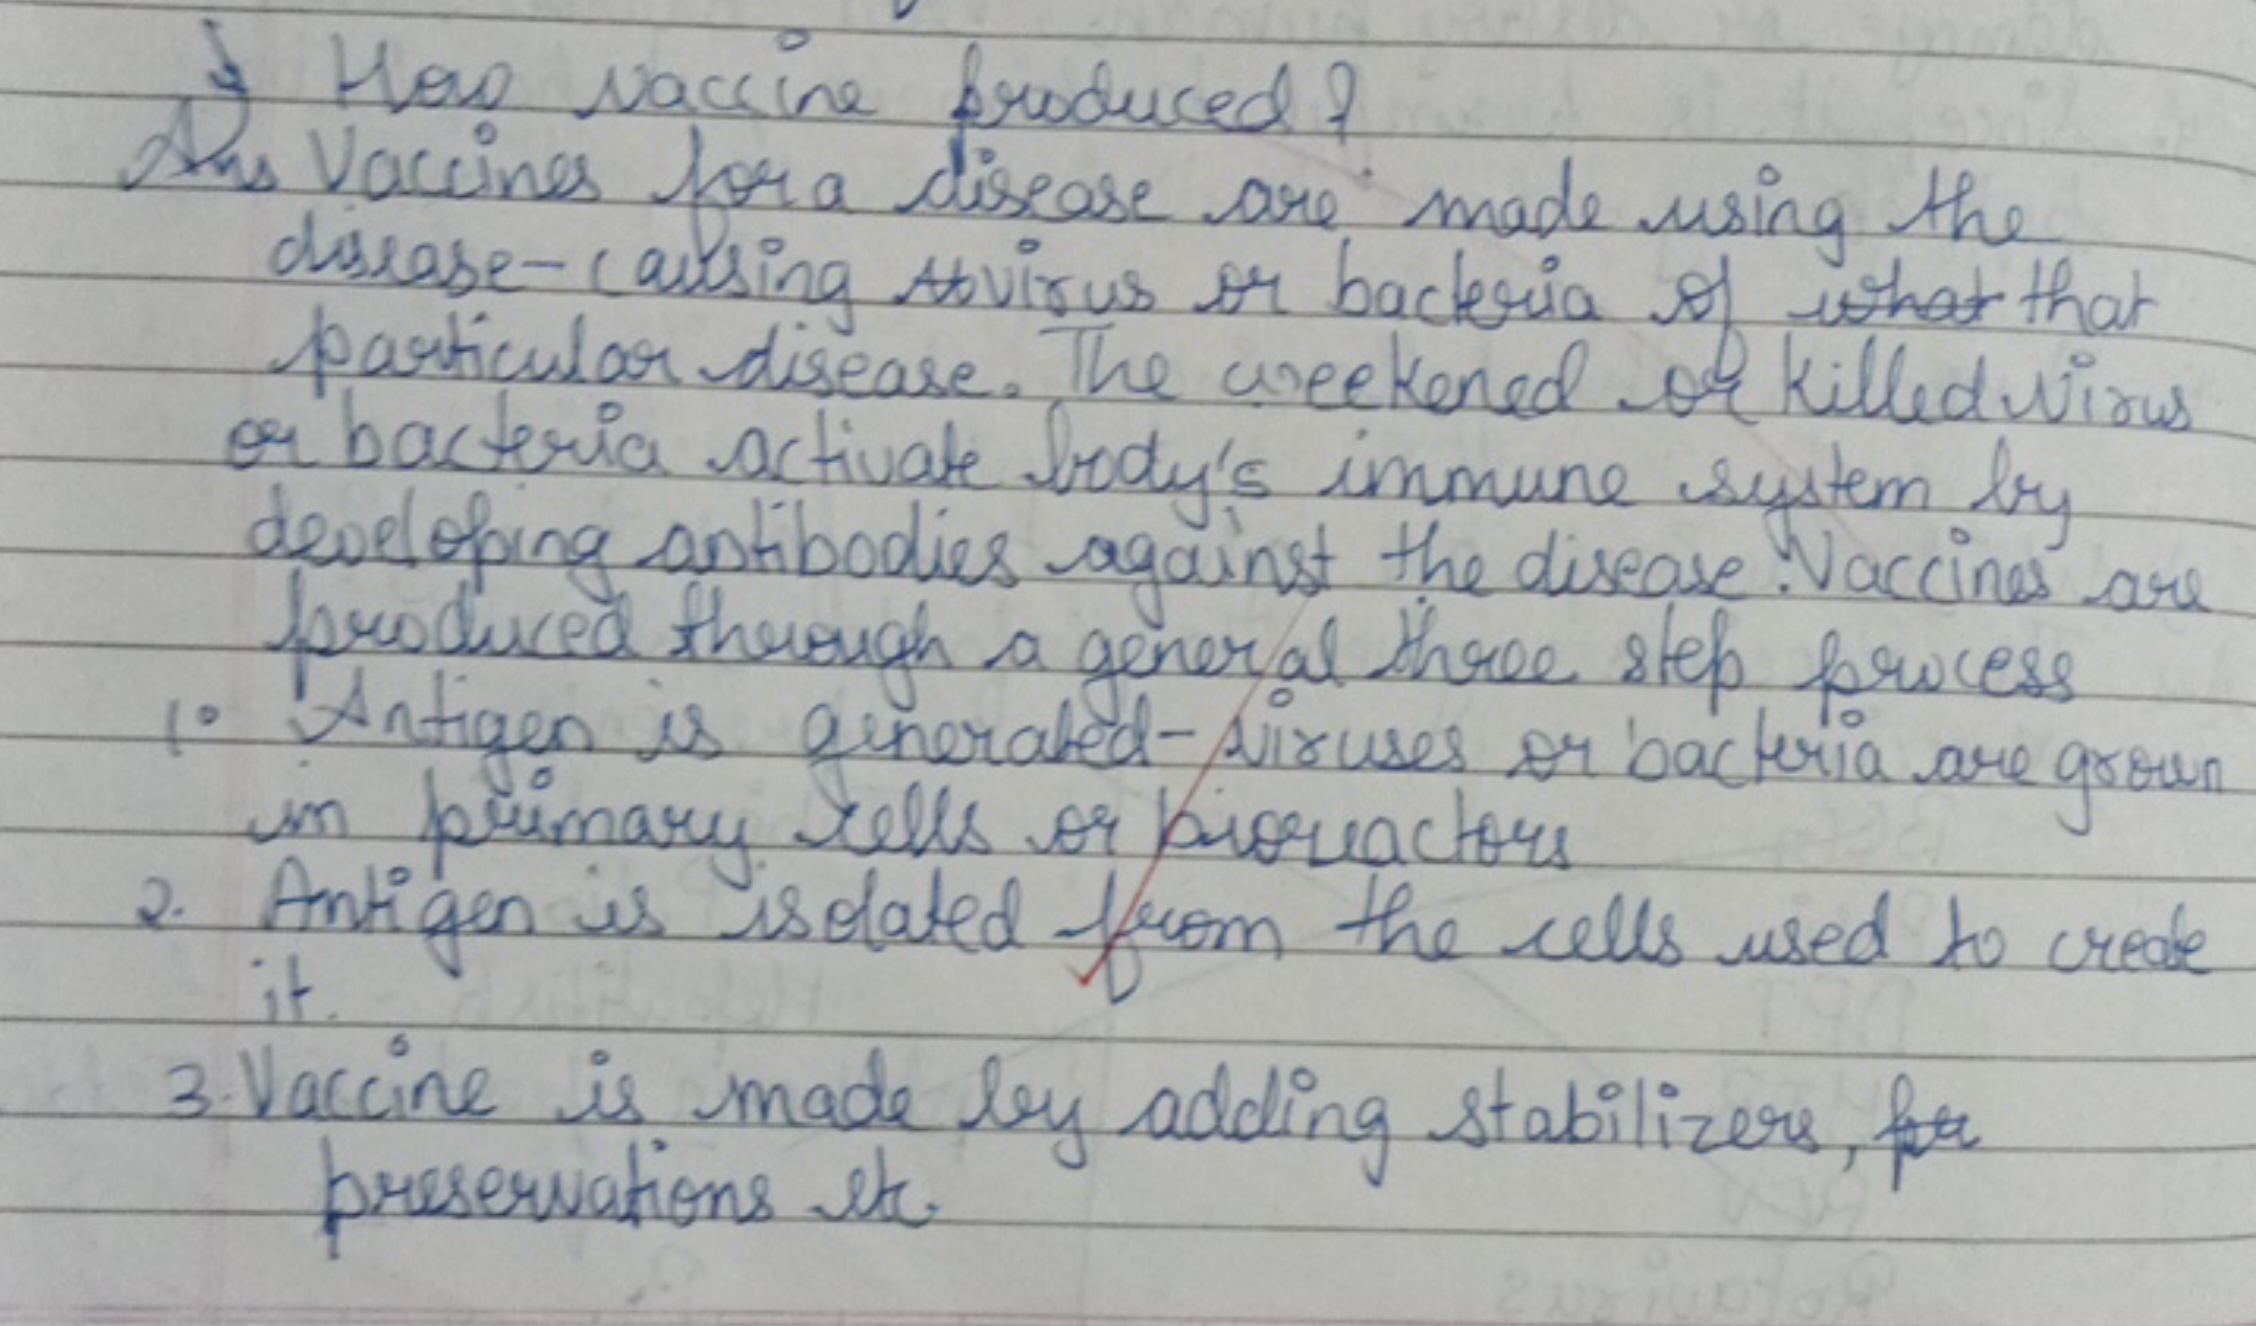 How vaccine produced?
Ans Vaccines for a disease are made using the
disease-causing virus or bacteria of what that
particular disease. The weekened or killed virus
or bacteria activate body's immune system by
developing antibodies against the disease. Vaccines are
produced through a general three step process
1. Antigen is generated- viruses or bacteria are grown
in primary cells or bioreactors
2. Antigen is isolated from the cells used to create
it.
3. Vaccine is made by adding stabilizers,
preservations etc.